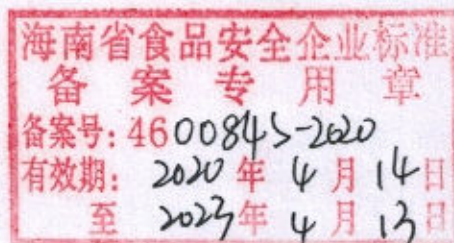 海南省食品安全企业标准
备案专用章
备案号：4600845-2020
有效期：2020年4月14日
至2023年4月13日